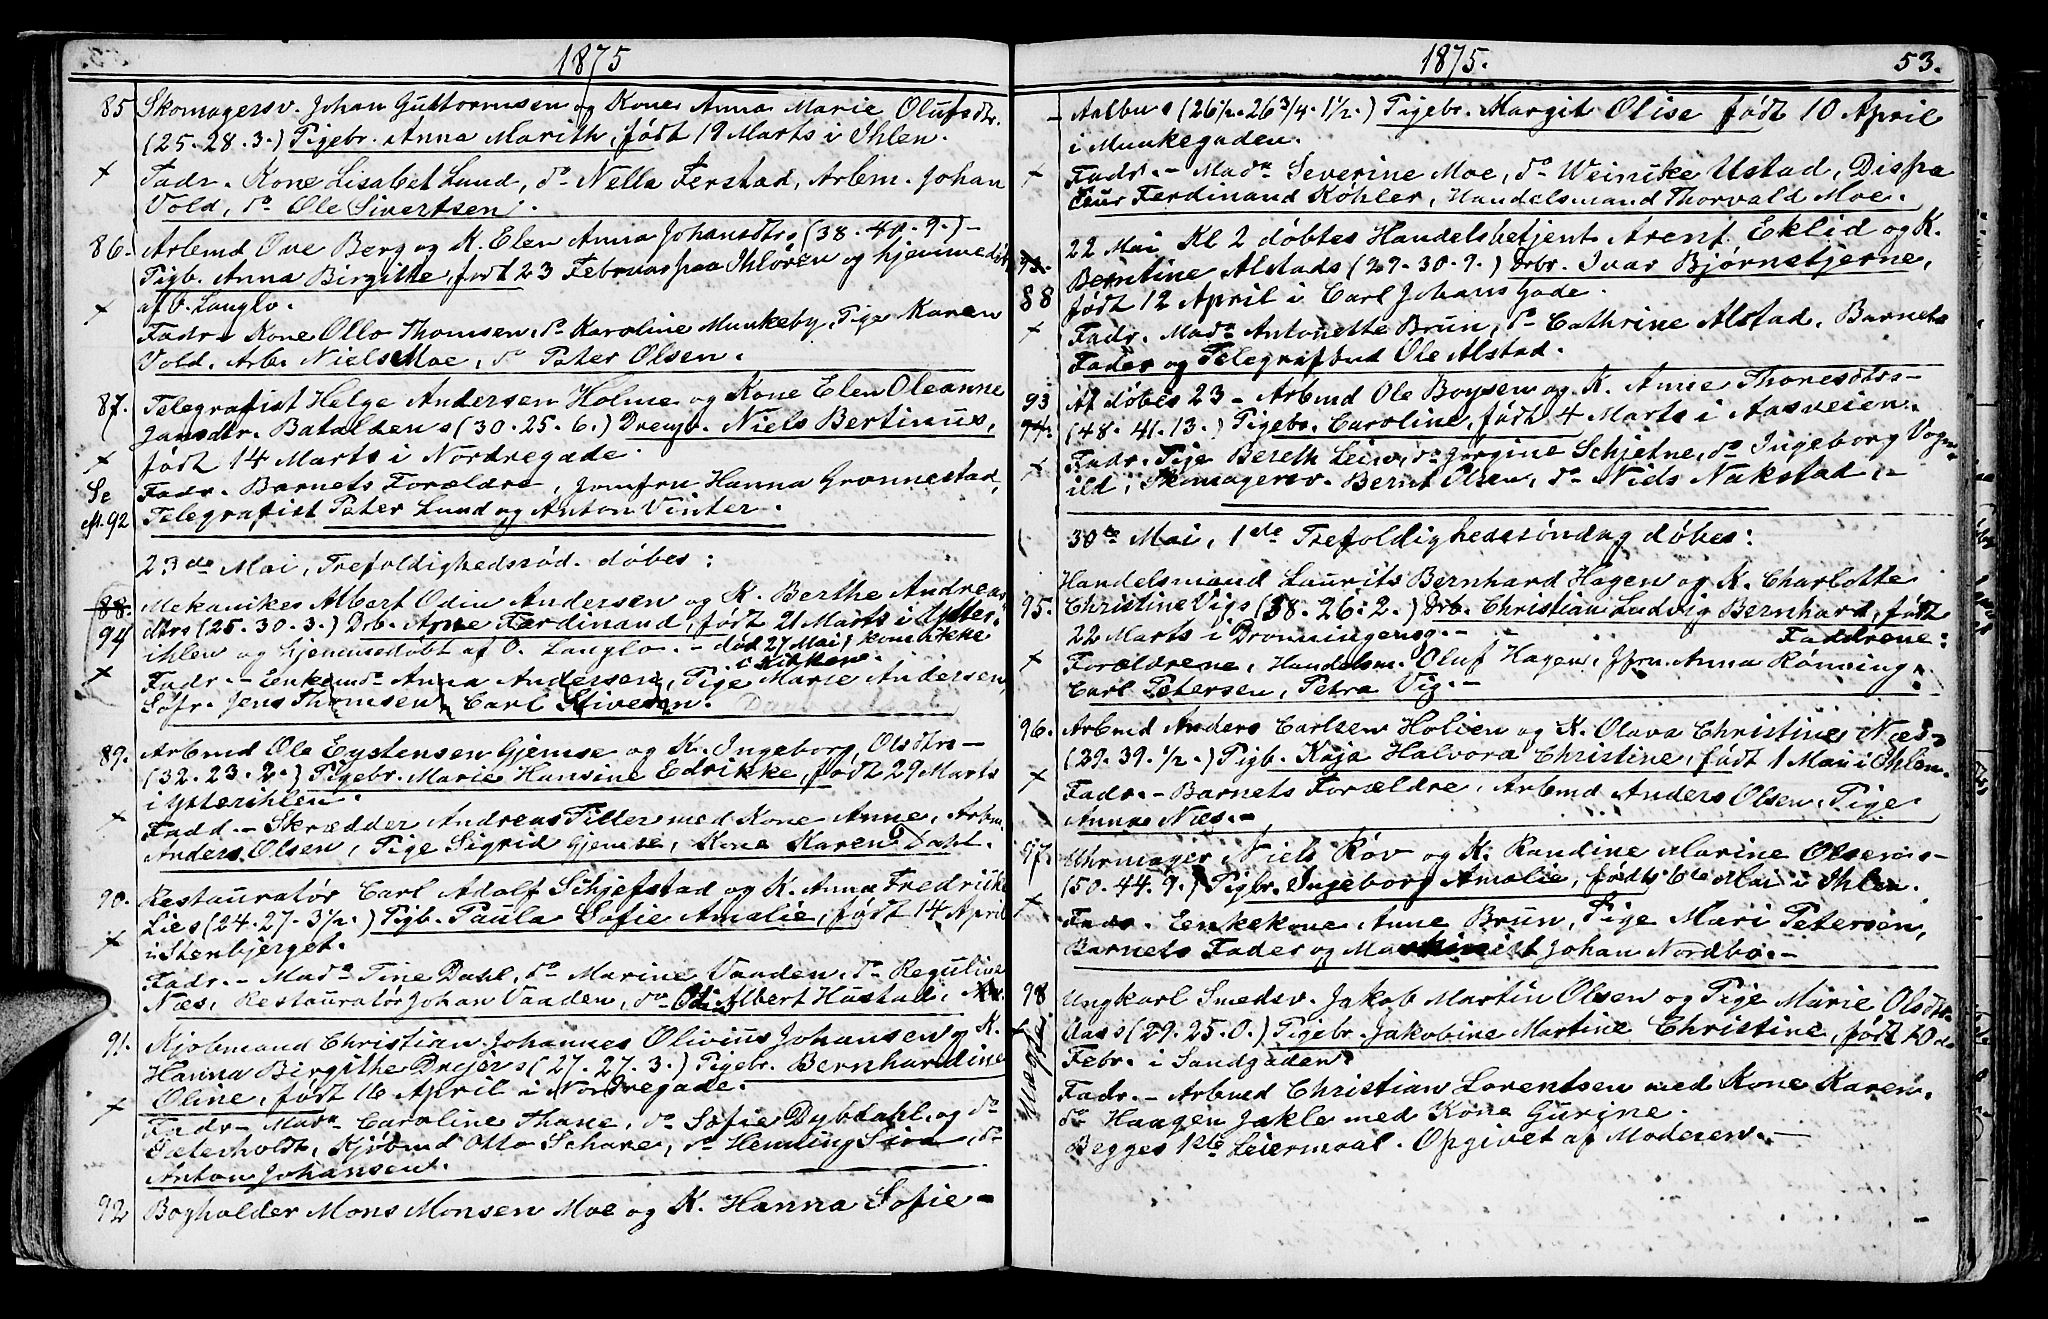 1875
85 Skomagersv. Johan Guttormsen og Kone Anna Marie Olufsdtr.
(25. 28. 3.) Pigebr. Anna Marith, født 19 Marts i Ihlen.
+ Fadr. Kone Lisabet Lund, do Nella Ferstad, Arbm. Johan
Vold, do Ole Sivertsen.
86. Arbmd Ove Berg og K. Elen Anna Johansdtrs (38. 40. 9.) –
Pigb. Anna Birgithe, født 23 Februar paa Ihlören og hjemmedöbt
+ af O. Langlo.
Fadr – Kone Ollo Thomsen, do Karoline Munkeby, Pige Karen
Vold. Arb. Niels Moe, do Peter Olsen.
87. Telegrafist Helge Andersen Holme og Kone Elen Oleanne
Jansdtr. Bataldens (30. 25. 6.) Drengr. Niels Bertinus,
+ født 14 Marts i Nordregade.
Se Fadr. Barnets Forældre, Jomfru Hanna Grønnestad,
N. 92 Telegrafist Peter Lund og Anton Vinter.
23de Mai, Trefoldighedssød. døbes:
88. Mekanikes Albert Odin Andersen og K. Berthe Andreas
94 dtrs (25. 30. 3.) Drb. Arne Ferdinand, født 21 Marts i Ytter-
ihlen og hjemmedøbt af O. Langlo. – død 27 Mai, kom ikke
i Kirken.
+ Fadr. – Enkemdo Anna Andersen, Pige Marie Andersen,
Sofr. Jens Thomsen, Carl Stivesen.
89. Arbmd Ole Eystensen Gjemse og K. Ingeborg Olsdtrs –
(32. 23. 2.) Pigebr. Marie Hansine Edrikke, født 29 Marts
i Ytterihlen.
+ Fadd. – Skrædder Andreas Tiller med Kone Anne, Arbm.
Anders Olsen, Pige Sigrid Gjemse, Kone Karen Dahl.
90. Restauratør Carl Adolf Schjefstad og K. Anna Fredrikke
Lies (24. 27. 3½.) Pigb. Paula Sofie Amalie, født 14 April
+ i Stenbjerget.
Fadr. – Mado Tine Dahl, do Marine Vaaden, do Reguline
Næs, Restauratør Johan Vaaden, do Odin Albert Hustad.
91. Kjøbmand Christian Johannes Olivius Johansen og K.
Hanna Birgithe Drejers (27. 27. 3.) Pigebr. Bernhardine
Oline, født 16 April i Nordregade.
+ Fadr – Mado Caroline Thane, do Sofie Dybdahl, og do
Peterholdt, Kjöbmd Otto Schare, do Henning Sion, do
Anton Johansen.
92 Bogholder Mons Monsen Moe og K. Hanna Sofie –
1875. 53.
– Aalbus (26½. 26¾. 1½.) Pigebr. Margit Olise født 10 April
i Munkegaden.
+ Fadr. – Mado Severine Moe, do Weinike Ustad, Dispa
teur Ferdinand Köhler, Handelsmand Thorvald Moe.
22 Mai Kl 2 døbtes Handelsbetjent Arent Eklid og K.
93. Berntine Alstads (29. 30. 9.) Drbr. Ivar Bjørnstjerne,
88 født 12 April i Carl Johans Gade.
+ Fadr. Mado Antonette Brun, do Cathrine Alstad. Barnets
Fader og Telegrafbud Ole Alstad.
93 At døbes 23 – Arbmd Ole Boysen og K. Anne Thoresdtrs –
94. (48. 41. 13.) Pigebr. Caroline, født 4 Marts i Aasveien.
+ Fadr. Pige Bereth Lein, do Jørgine Schjetne, do Ingeborg Vogn-
ild, Skomagersv. Bernt Olsen, do Niels Nakstad. –
30te Mai, 1ste Trefoldighedssøndag døbes:
Handelsmand Laurits Bernhard Hagen og K. Charlotte
95. Christine Vigs (58. 26. 2.) Drb. Christian Ludvig Bernhard, født
22 Marts i Dronningensg. – Faddrene:
+ Forældrene, Handelsm. Oluf Hagen, Jfru. Anna Rönning,
Carl Petersen, Petra Vig. –
96. Arbmd Anders Carlsen Holien og K. Olava Christine Næs –
(29. 39. ½.) Pigb. Kaja Halvora Christine, født 1 Mai i Ihlen.
+ Fadr. – Barnets Forældre, Arbmd Anders Olsen, Pige
Anna Næs. –
97. Uhrmager Niels Röv og K. Randine Marine Olsens –
(50. 44. 9.) Pigbr. Ingeborg Amalie, født 6te Mai i Ihlen.
+ Fadr. Eenkekone Anne Brun, Pige Mari Petersen,
Barnets Fader og Maskinist Johan Nordbo. –
98 Ungkarl Smedsv. Jakob Martin Olsen og Pige Marie Olsdtr.
+ Aas (29. 25. 0.) Pigebr. Jakobine Martine Christine, født 10de
Uægte. Febr. i Sandgaden.
Fadr. – Arbmd Christian Lorentsen med Kone Karen.
do Haagen Jakle med Kone Gurine.
Begges 1ste Leiermaal. Opgivet af Moderen. –